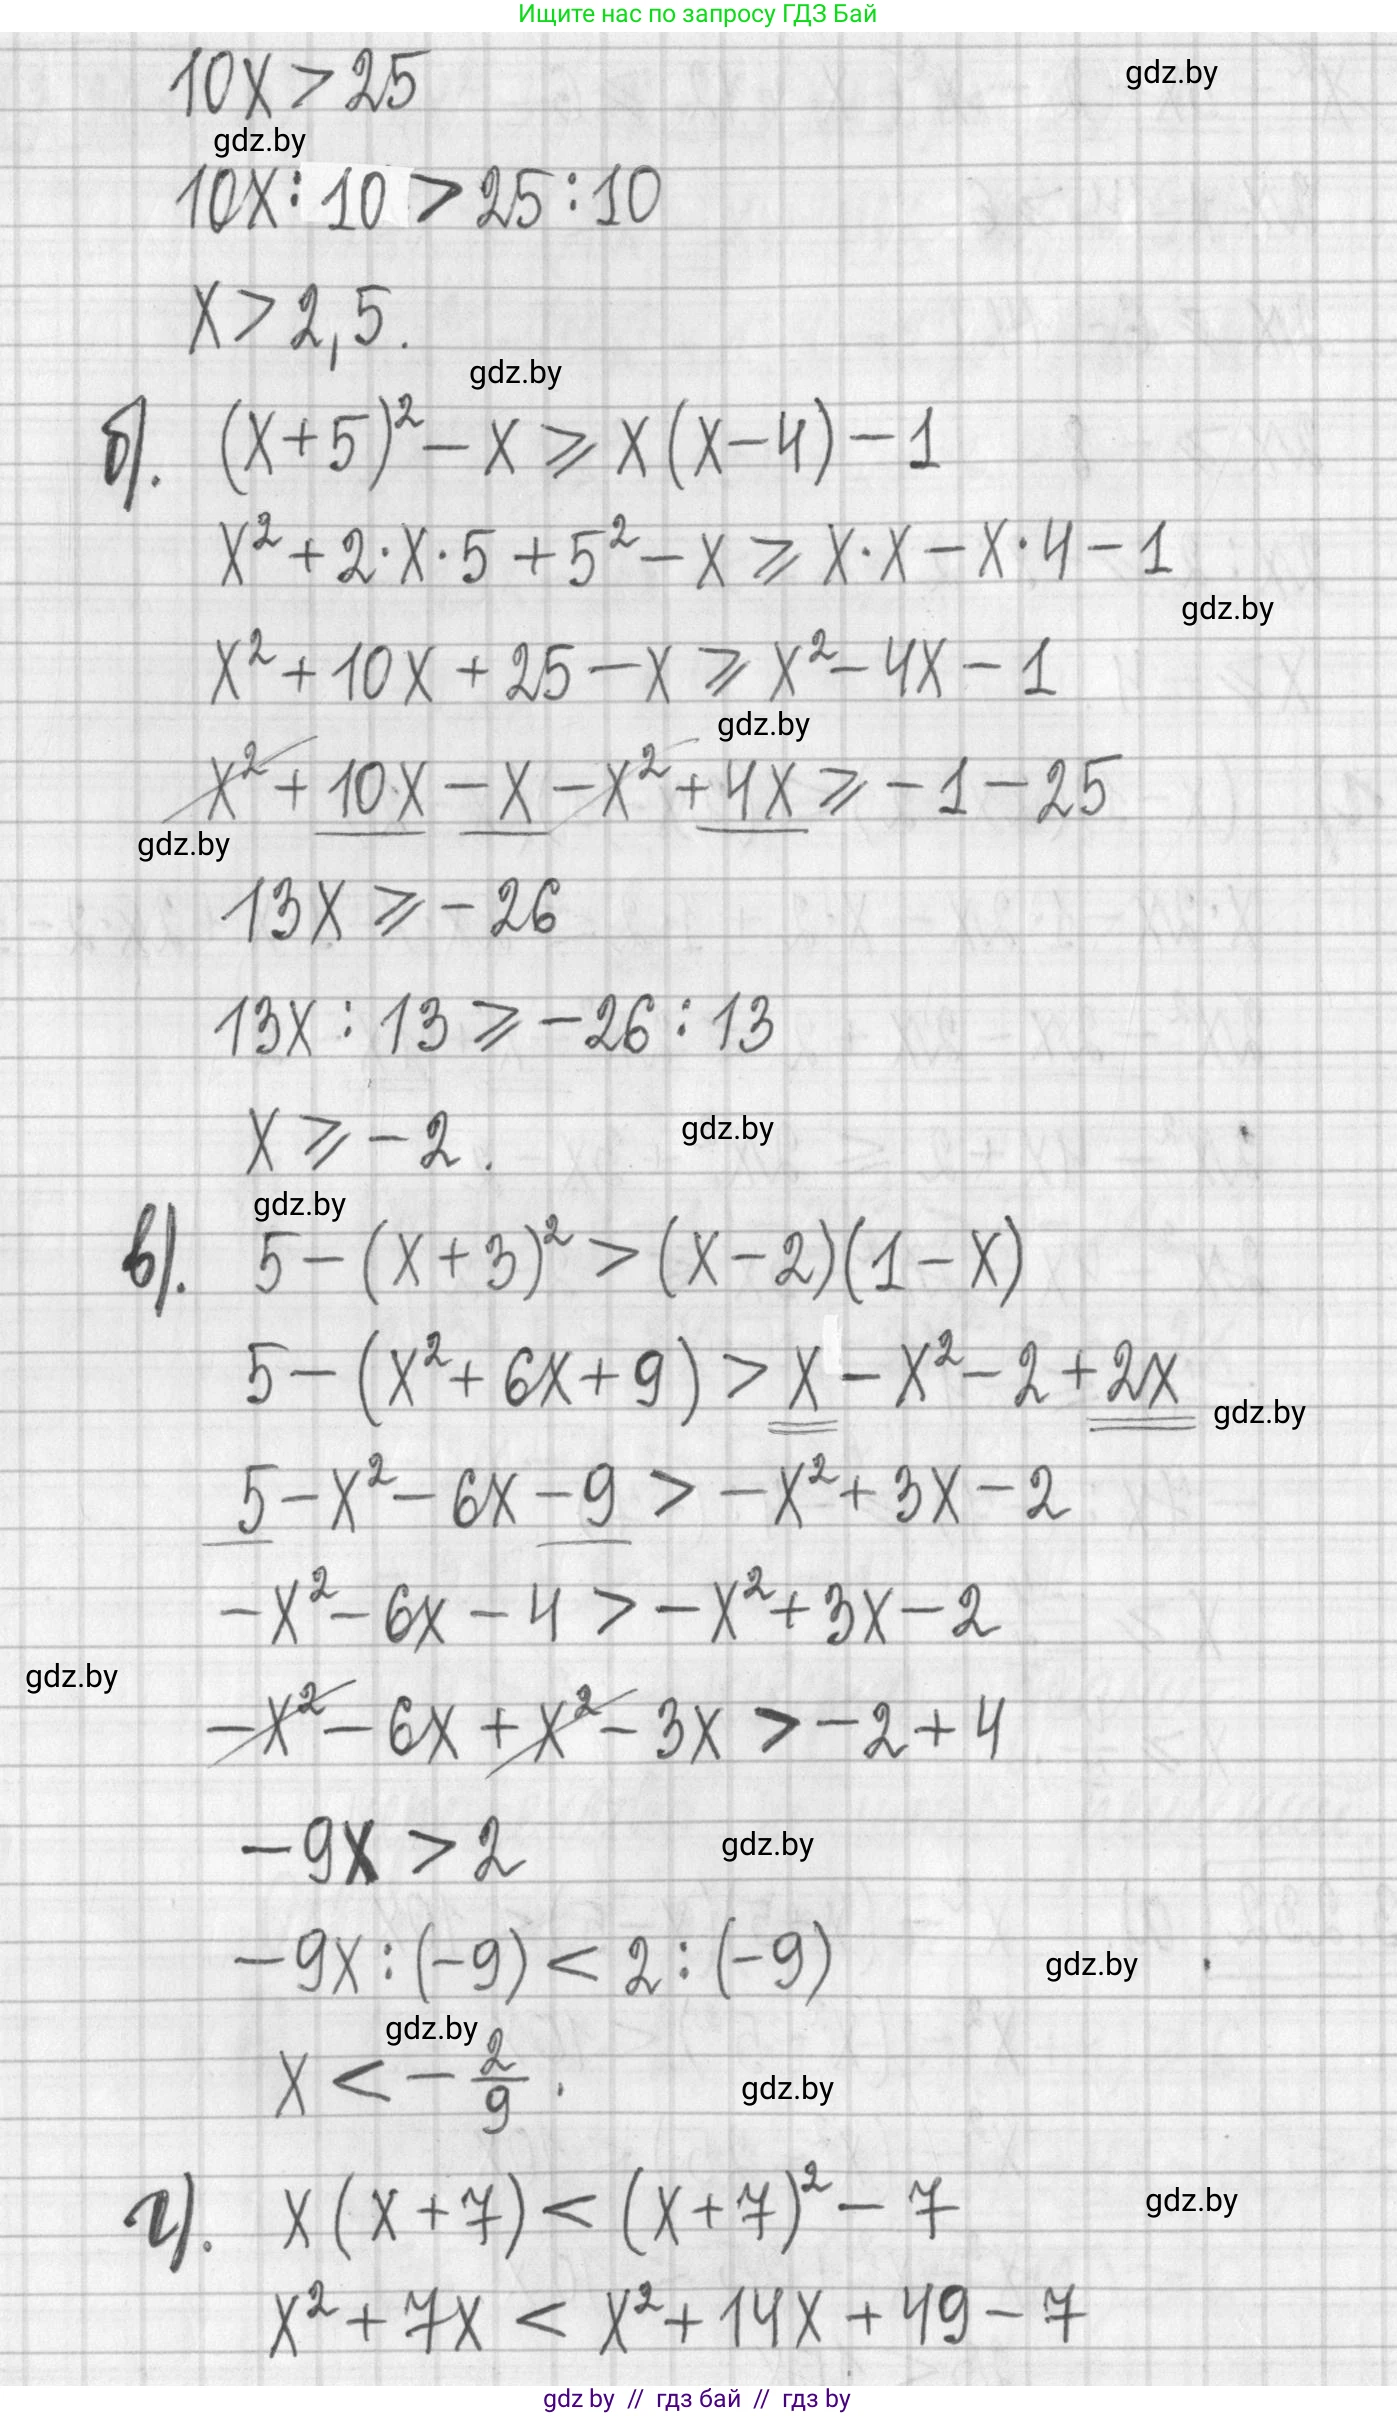 Ищите нас по запросу ГДЗ Бай
10x > 25
gdz.by
gdz.by
10x : 10 > 25 : 10
x > 2,5.
gdz.by
б). (x+5)² – x ⩾ x(x–4) – 1
x² + 2·x·5 + 5² – x ⩾ x·x – x·4 – 1
gdz.by
x² + 10x + 25 – x ⩾ x² – 4x – 1
gdz.by
x² + 10x – x – x² + 4x ⩾ – 1 – 25
gdz.by
13x ⩾ – 26
13x : 13 ⩾ – 26 : 13
x ⩾ – 2.
gdz.by
gdz.by
в). 5 – (x+3)² > (x–2)(1–x)
5 – (x² + 6x + 9) > x – x² – 2 + 2x
gdz.by
5 – x² – 6x – 9 > – x² + 3x – 2
– x² – 6x – 4 > – x² + 3x – 2
gdz.by
– x² – 6x + x² – 3x > – 2 + 4
– 9x > 2
gdz.by
– 9x : (–9) < 2 : (–9)
gdz.by
gdz.by
x < – 2/9.
gdz.by
г). x(x+7) < (x+7)² – 7
gdz.by
x² + 7x < x² + 14x + 49 – 7
gdz by // гдз бай // гдз by